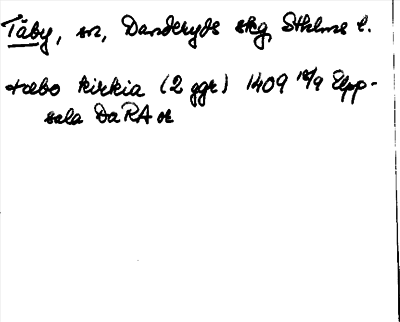 Täby, sn, Danderyds skg, Sthlms l.
tæbo kirkia (2 ggr) 1409 18/9 Upp-
sala DaRA or